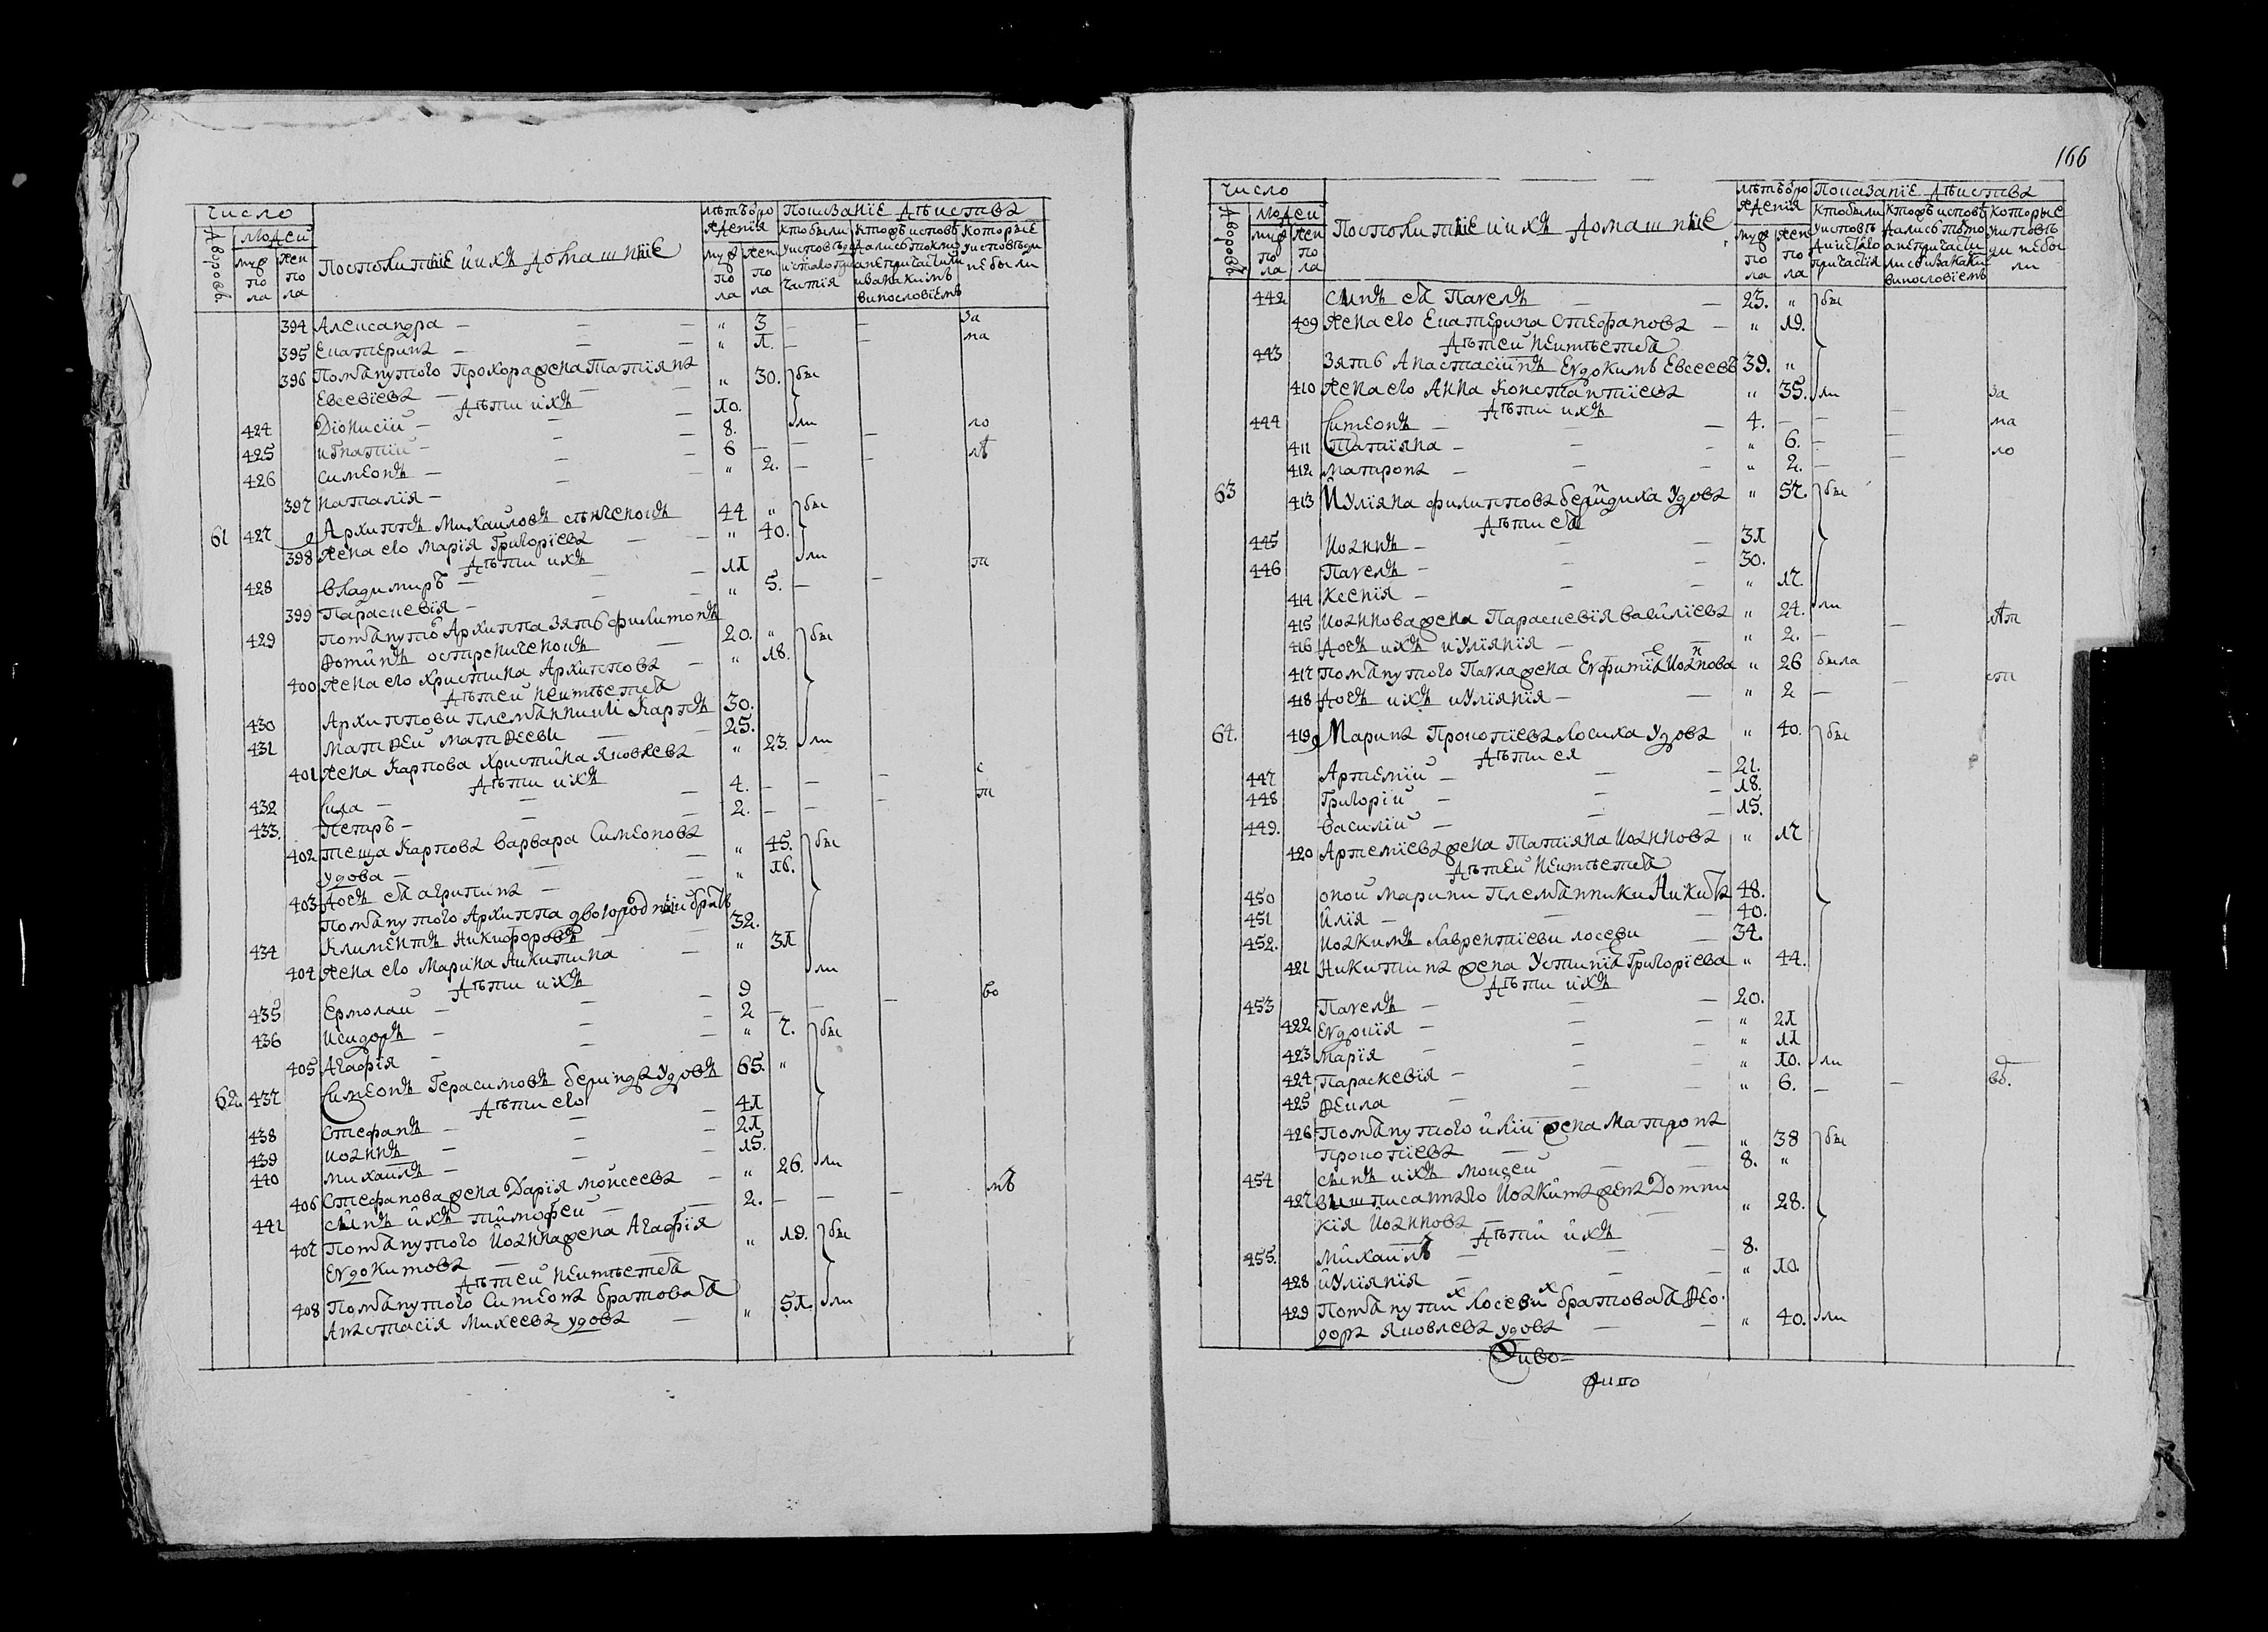 Число
Дворовъ
людей
муж по ла
жен по ла
Посполитіе и ихъ домашніе
лѣтъ ѿ ро жденія
муж по ла
жен по ла
Показаніе дѣиства
кто были у исповѣди и с͠того при частія
кто жъ исповѣ дались токмо а не причасти ли и за какимъ винословіемъ
которые у исповѣди не были
394 Александра — „ 3 — — за
395 Екатерина — „ 1. — — ма
396 Помянутого Прохора жена Татіяна
Евсевіева — „ 30. бы
дѣти ихъ
424 Діонисій — 10. ли
425 Игнатій — 8. ло
426 Симеонъ — 6 — — лѣ
397 Наталія — „ 2. —
61 427 Архиппъ Михайловъ 44 „ бы
398 жена его Марія Григоріева — „ 40.
дѣти ихъ ли
428 Владимиръ — 11 т
399 Параскевія — „ 5. — —
429 Помянутого Архиппа зять Филимонъ
Фоминъ — 20. „ бы
400 жена его Христина Архиппова — „ 18.
дѣтей неимѣетъ
430 Архиппови племянники Карпъ 30.
431 Матѳей Матѳееви 25.
401 жена Карпова Христина Яковлева „ 23. ли
дѣти ихъ
432 Сила — 4. — — с
433. Петаръ — 2. — — т
402 теща Карпова Варвара Симеонова
удова — „ 45. бы
403 дочъ ея Агрипина — „ 16.
Помянутого Архиппа двоюродній братъ
434 Климентъ Никифоровъ 32.
404 жена его Марина Никитина — „ 31
дѣти ихъ ли
435 Ермолай — 9 во
436 Исидоръ — 2 — —
405 Агафія — „ 7. бы
62. 437 Симеонъ Герасимовъ Беринда удовъ 65. „
дѣти его
438 Стефанъ — 41
439 Иоаннъ — 21
440 Михаилъ — 15.
406 Стефанова жена Дарія Моисеева „ 26. ли
441 сынъ ихъ Тимофей — 2. — — лѣ
407 Помянутого Иоанна жена Агафія
Евдокимова — „ 19. бы
дѣтей неимѣетъ
408 Помянутого Симеона братовая
Анастасія Михеева удова — „ 51. ли
166
Число
Дворовъ
людей
муж по ла
жен по ла
Посполитіе и ихъ домашніе
лѣтъ ѿ ро жденія
муж по ла
жен по ла
Показаніе дѣиства
442 сынъ ея Павелъ — 23. „ бы
409 жена его Екатерина Стефанова — „ 19.
дѣтей неимѣетъ
443 зять Анастасіинъ Евдокимъ Евсеевъ 39. „
410 жена его Анна Константіева „ 35. ли за
дѣти ихъ
444 Симеонъ — 4. — — ма
411 Татіяна — „ 6. — — ло
412 Матрона — „ 2. —
63 413 Иуліяна Филиппова Бериндиха удова „ 57. бы
дѣти ея
445 Иоаннъ — 31
446 Павелъ — 30.
414 Ксенія — „ 17
415 Иоаннова жена Параскевія Василіева „ 24. ли
416 дочъ ихъ Иуліянія — „ 2. — — лѣт
417 Помянутого Павла жена Евфимія Иоаннова „ 26 была
418 дочъ ихъ Иуліянія — „ 2 — — ст
64. 419 Марина Прокопіева Лосиха удова „ 40. бы
дѣти ея
447 Артемій — 21.
448 Григорій — 18.
449. Василій — 15.
420 Артеміева жена Татіяна Иоаннова „ 17
дѣтей неимѣетъ
450 оной Марини племянники Никита 48.
451 Илія — 40.
452. Иоакимъ Лаврентіеви Лосеви — 34.
421 Никитина жена Устинія Григоріева „ 44.
дѣти ихъ
453 Павелъ — 20.
422 Евдокія — „ 21
423 Марія — „ 11
424 Параскевія — „ 10. ли
425 Ѳекла — „ 6. — — во.
426 Помянутого Иліи жена Матрона
Прокопіева — „ 38 бы
454 сынъ ихъ Моисей 8. „
427 вишписанаго Иоакима жена Домни
кія Иоаннова — „ 28.
дѣти ихъ
455. Михаилъ — 8.
428 Иуліянія — „ 10.
429 Помянутих Лосевих братовая Ѳео
дора Яковлева удова — „ 40. ли